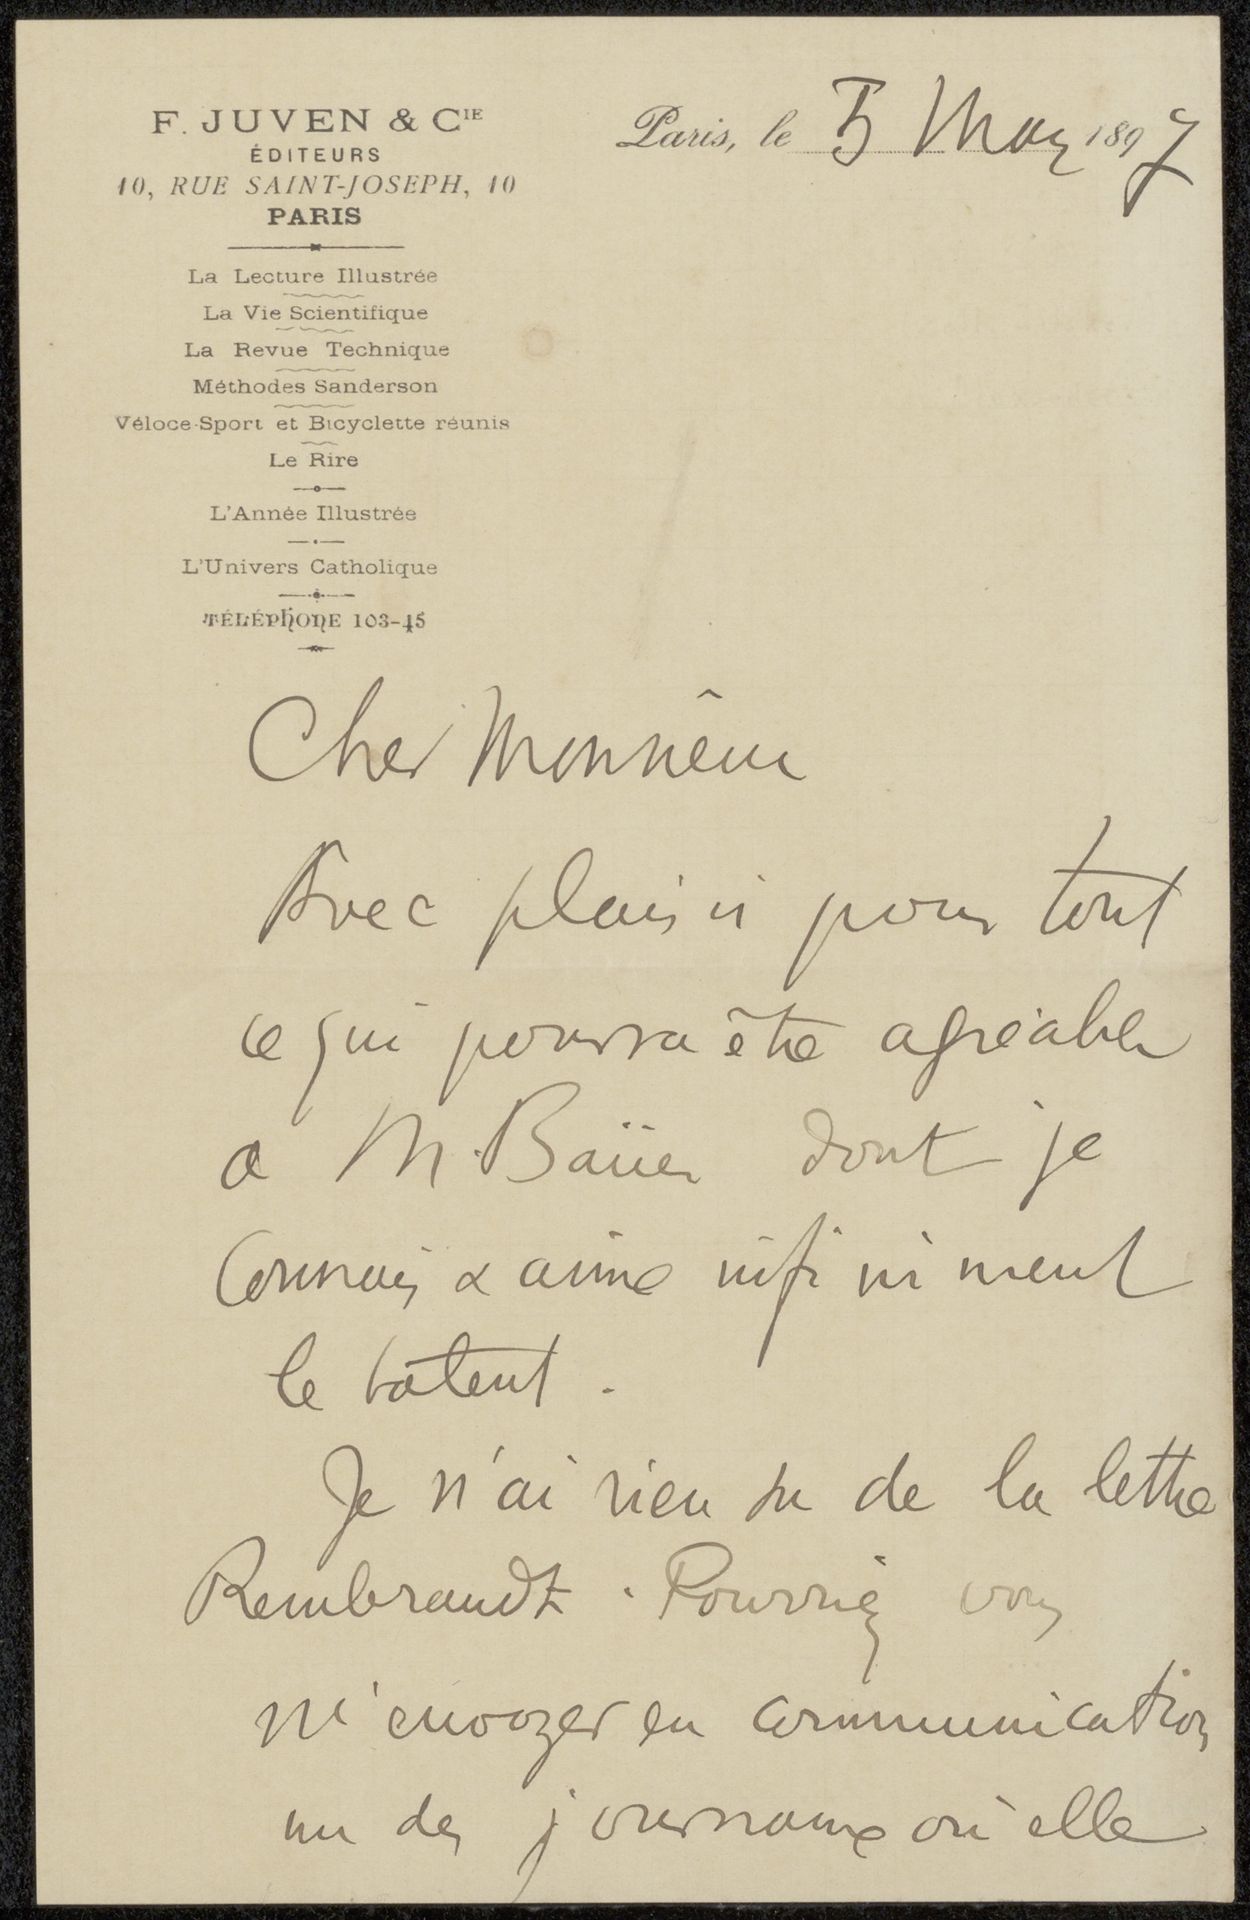 F. JUVEN & CIE
ÉDITEURS
10, RUE SAINT-JOSEPH, 10
PARIS
La Lecture Illustrée
La Vie Scientifique
La Revue Technique
Méthodes Sanderson
Véloce-Sport et Bicyclette réunis
Le Rire
L'Année Illustrée
L'Univers Catholique
TÉLÉPHONE 103-45
Paris, le 5 May 1897
Cher Monsieur
Avec plaisir pour tout
ce qui pourra être agréable
a M. Baüer dont je
connais & aime infiniment
le talent.
Je n'ai rien su de la lettre
Rembrandt. Pourriez vous
m'envoyer en communication
un des journaux où elle